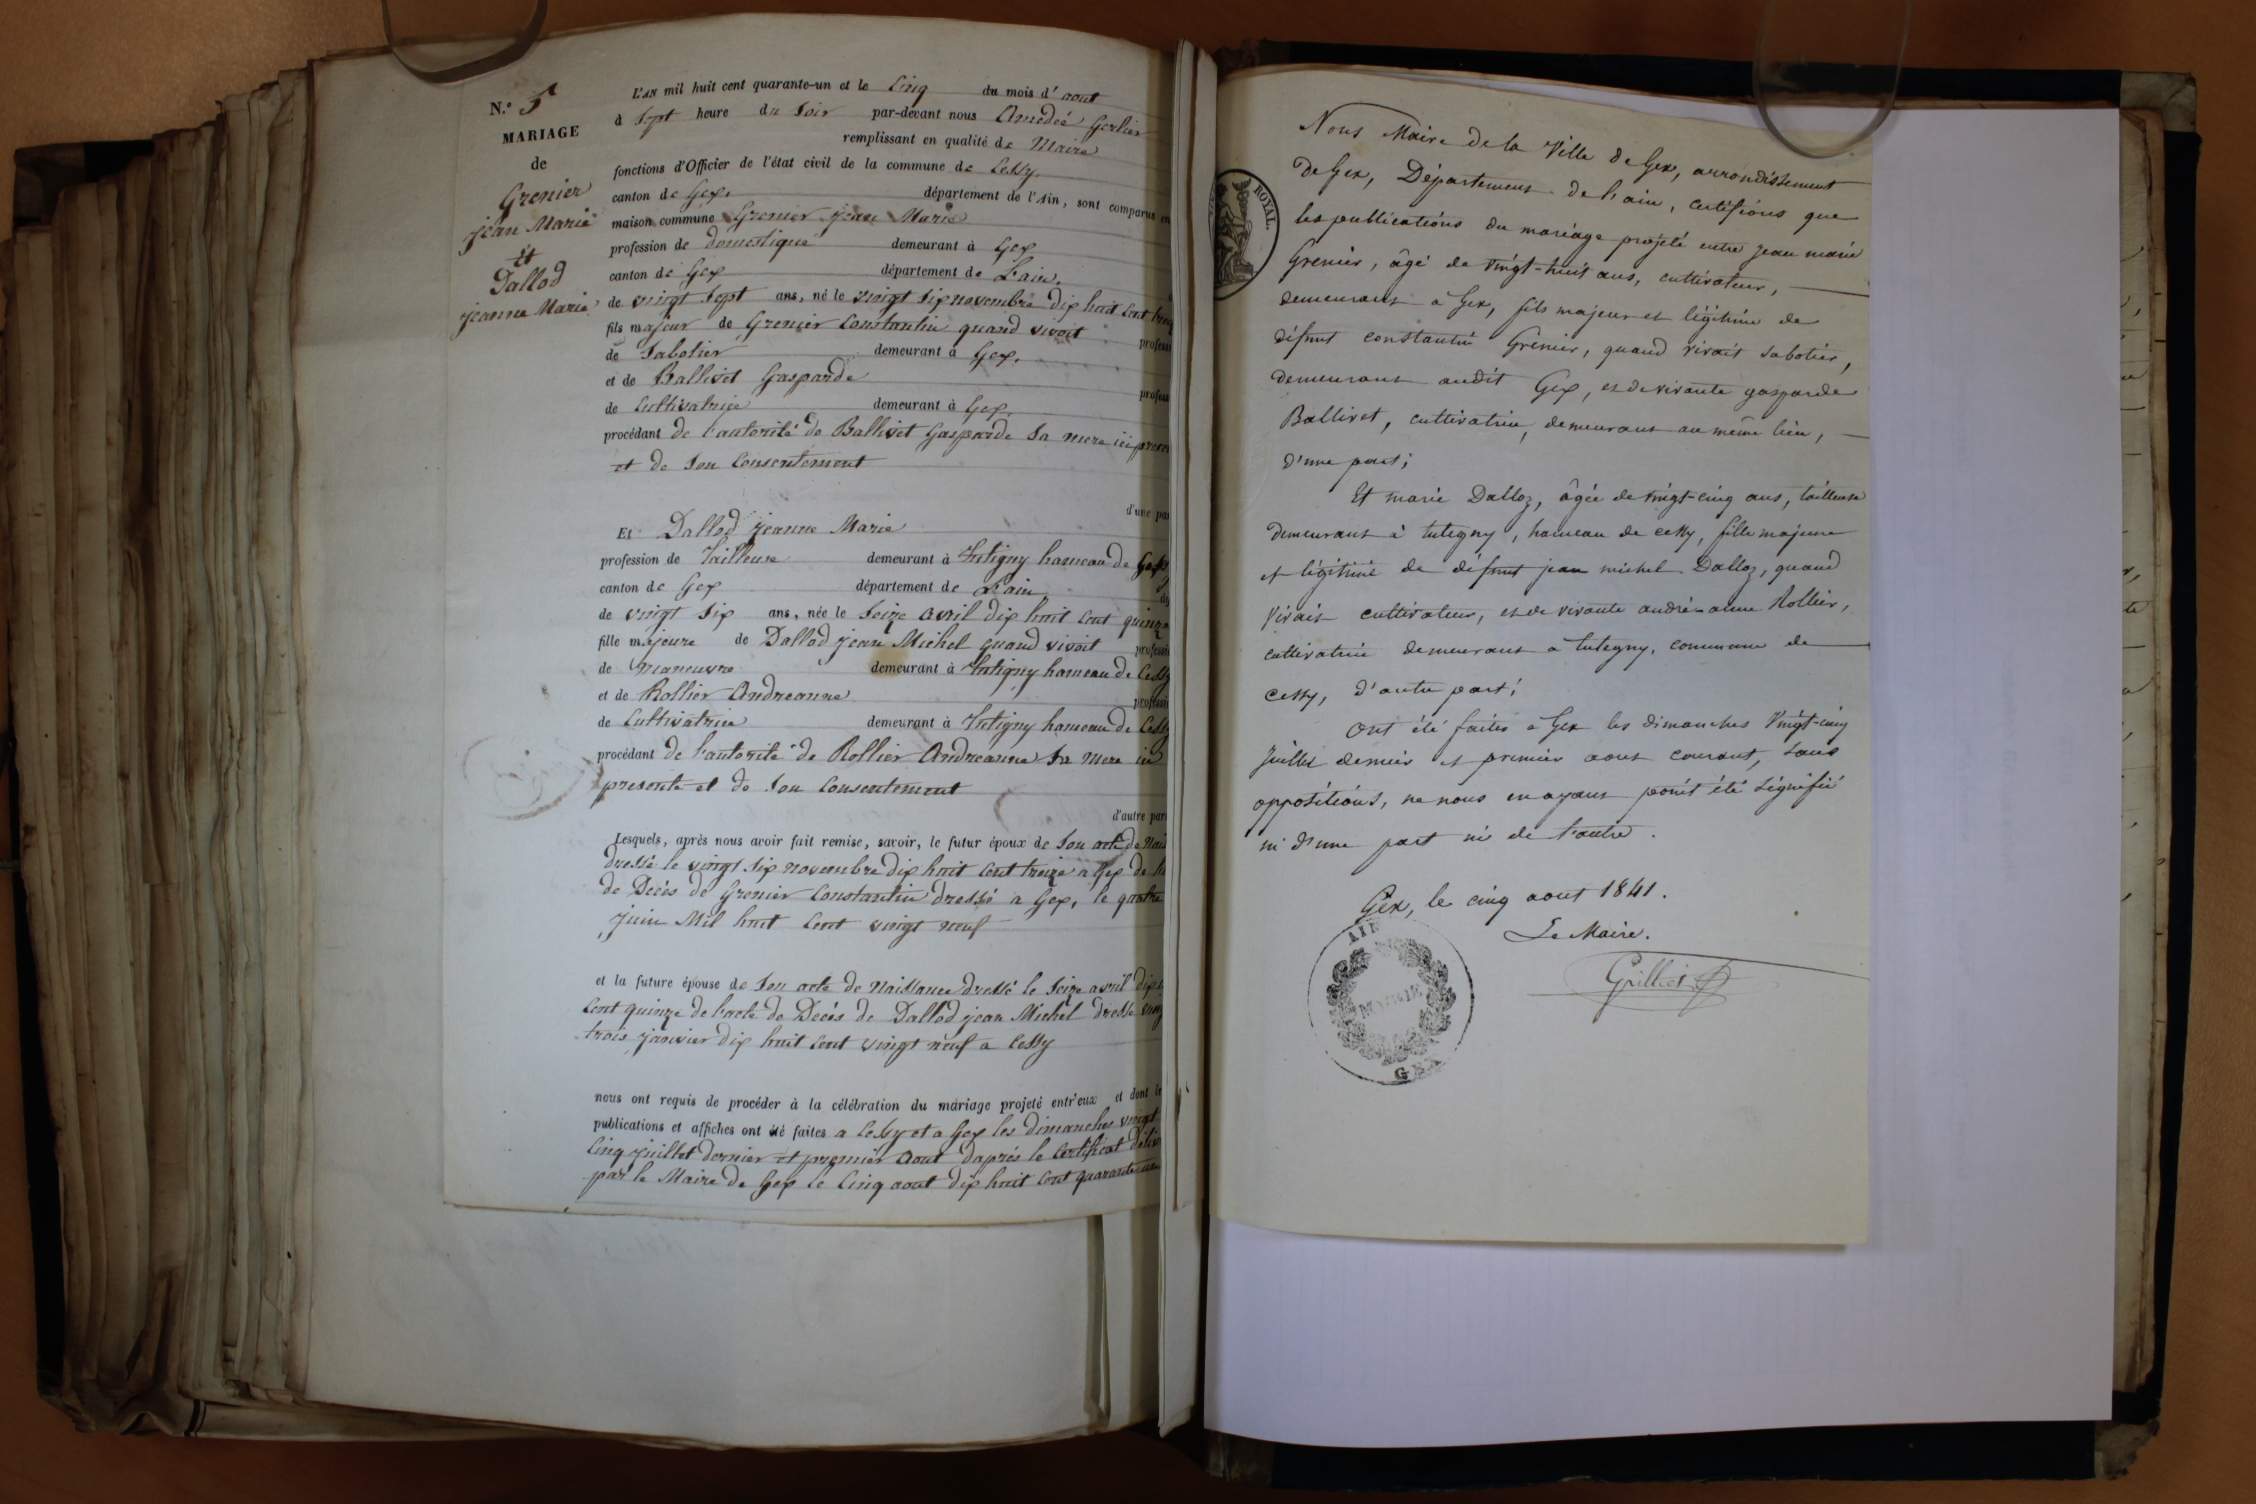 N.° 5
MARIAGE
de
Grenier
jean Marie
et
Dallod
jeanne Marie
L'AN mil huit cent quarante-un et le Cinq du mois d'aout
à Sept heure du Soir par-devant nous Amédée Gerlier
remplissant en qualité de Maire
fonctions d'Officier de l'état civil de la commune de Cessy,
canton de Gex, département de l'Ain, sont comparus en
maison commune Grenier jean Marie
profession de domestique demeurant à Gex
canton de Gex département de L'ain,
de vingt Sept ans, né le vingt Six novembre dix huit Cent
fils majeur de Grenier Constantin quand vivoit profess
de Sabotier demeurant à Gex,
et de Ballivet Gasparde profess
de Cultivatrice demeurant à Gex,
procédant de l'autorité de Ballivet Gasparde Sa mere ici
et de Son Consentement
d'une par
Et Dallod jeanne Marie
profession de Tailleuse demeurant à Tutigny hameau de
canton de Gex département de L'ain
de vingt Six ans, née le Seize avril dix huit Cent quinze
fille majeure de Dallod jean Michel quand vivoit professi
de Maneuvre demeurant à Tutigny hameau de Cessy
et de Rollier Andreanne professi
de Cultivatrice demeurant à Tutigny hameau de Cessy
procédant de l'autorité de Rollier Andreanne Sa Mere ici
presente et de Son Consentement
d'autre part
Lesquels, après nous avoir fait remise, savoir, le futur époux de Son acte de Nais
dressé le vingt Six novembre dix huit Cent treize a Gex de
de Decés de Grenier Constantin dressé a Gex, le quatre
juin Mil huit Cent vingt neuf
et la future épouse de Son acte de Naissance dressé le Seize avril dix
Cent quinze de l'acte de Decés de Dallod jean Michel dressé
trois janvier dix huit Cent vingt neuf a Cessy
nous ont requis de procéder à la célébration du mariage projeté entr'eux et dont le
publications et affiches ont été faites a Cessy et a Gex les dimanches vingt
Cinq juillet dernier et premier Aout daprés le Certificat
par le Maire de Gex le Cinq aout dix huit Cent quarante un
ROYAL.
Nous Maire de la Ville de Gex, arrondissement
de Gex, Département de l'ain, certifions que
les publications du mariage projeté entre jean marie
Grenier, âgé de vingt-huit ans, cultivateur,
demeurant à Gex, fils majeur et légitime de
défunt constantin Grenier, quand vivait sabotier,
demeurant audit Gex, et de vivante gasparde
Ballivet, cultivatrice, demeurant au même lieu,
d'une part;
Et marie Dalloz, âgée de vingt-cinq ans, tailleuse
demeurant à tutegny, hameau de cessy, fille majeure
et légitime de défunt jean michel Dalloz, quand
vivait cultivateur, et de vivante andré-anne Rollier,
cultivatrice demeurant à tutegny, commune de
cessy, d'autre part;
Ont été faites à Gex les dimanches vingt-cinq
juillet dernier et premier aout courant, sans
oppositions, ne nous en ayant point été signifié
ni d'une part ni de l'autre.
Gex, le cinq aout 1841.
Le Maire.
AIN
MAIRIE
GEX